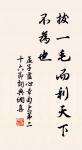 拔一毛而利天下
不為也
孟子盡心章句上第二
十六節朝興網喜